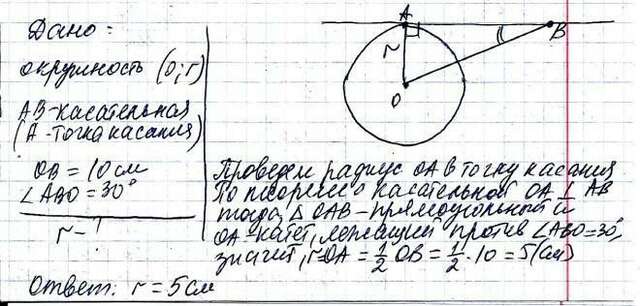 Дано:
окружность (O; r)
AB-касательная
(A-точка касания)
OB = 10 см
∠ABO = 30°
r - ?
A
B
r
O
Проведем радиус OA в точку касания
По теореме о касательной OA ⊥ AB
тогда, △ OAB - прямоугольный и
OA-катет, лежащий против ∠ABO=30°,
значит, r=OA = 1/2 OB = 1/2 · 10 = 5(см)
Ответ: r = 5 см